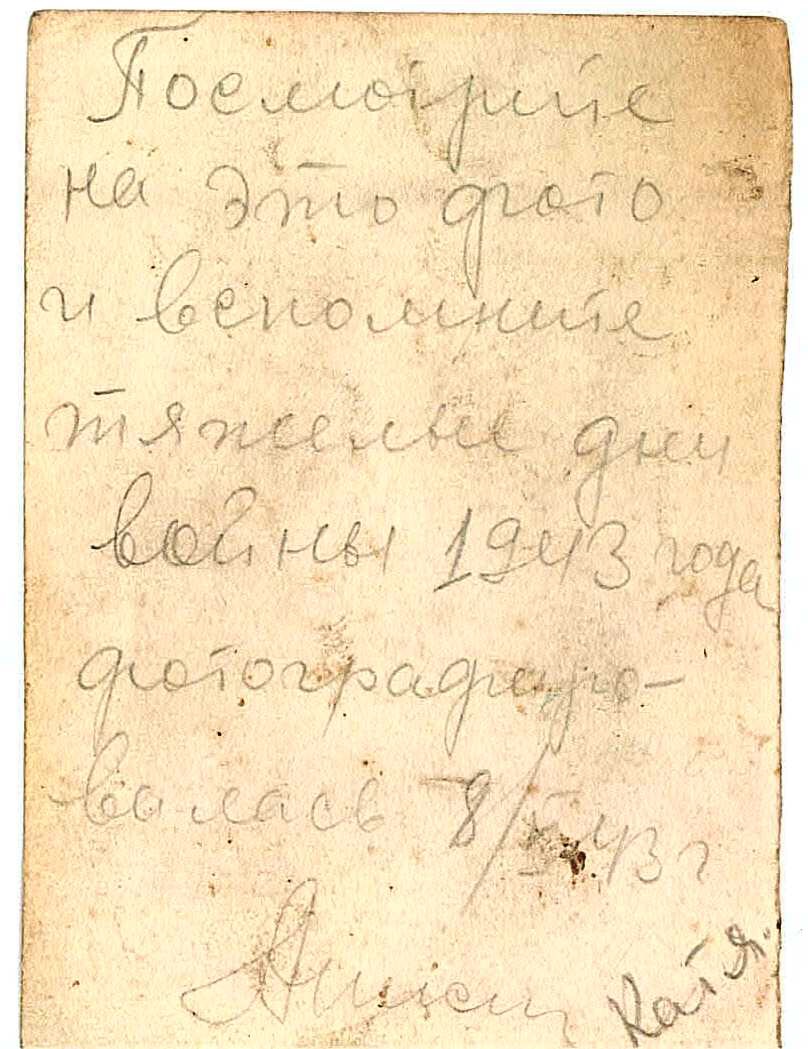 Посмотрите
на это фото
и вспомните
тяжелые дни
войны 1943 года
фотографиро-
валась 8/ 43 г
Катя